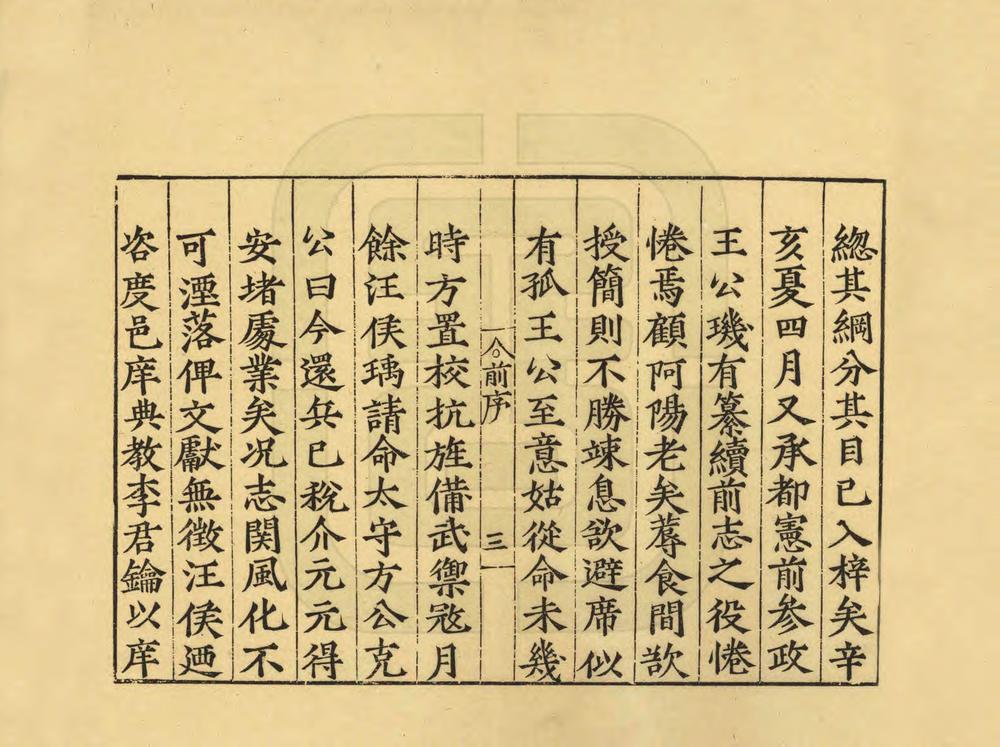 緫其綱分其目已入梓矣辛
亥夏四月又承都憲前參政
王公璣有纂續前志之役惓
惓焉顧阿陽老矣蓐食間歆
授簡則不勝竦息欲避席似
有孤王公至意姑從命未幾
前序
三
時方置校抗旌備武禦寇月
餘汪侯瑀請命太守方公克
公曰今還兵已稅介元元得
安堵處業矣况志関風化不
可湮落俾文獻無徵汪侯迺
咨度邑庠典教李君鑰以庠